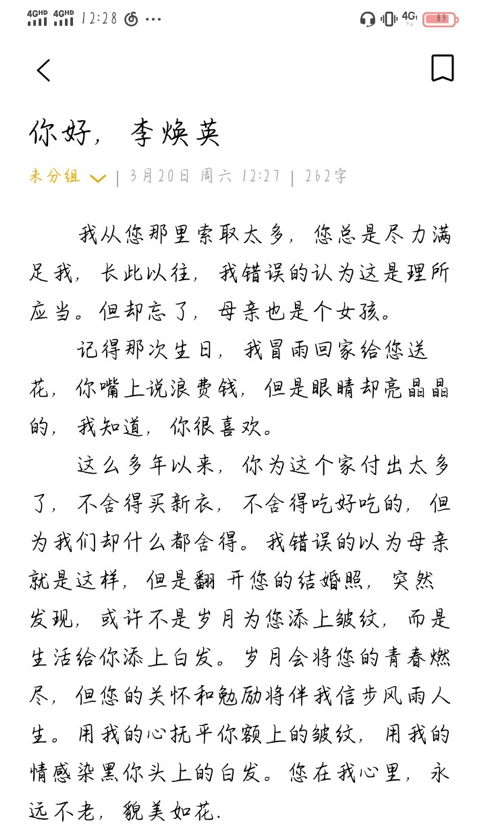 4GHD 4GHD 12:28 ... 4G 83
你好，李焕英
未分组 | 3月20日 周六 12:27 | 262字
我从您那里索取太多，您总是尽力满
足我，长此以往，我错误的认为这是理所
应当。但却忘了，母亲也是个女孩。
记得那次生日，我冒雨回家给您送
花，你嘴上说浪费钱，但是眼睛却亮晶晶
的，我知道，你很喜欢。
这么多年以来，你为这个家付出太多
了，不舍得买新衣，不舍得吃好吃的，但
为我们却什么都舍得。我错误的以为母亲
就是这样，但是翻 开您的结婚照，突然
发现，或许不是岁月为您添上皱纹，而是
生活给你添上白发。岁月会将您的青春燃
尽，但您的关怀和勉励将伴我信步风雨人
生。用我的心抚平你额上的皱纹，用我的
情感染黑你头上的白发。您在我心里，永
远不老，貌美如花.